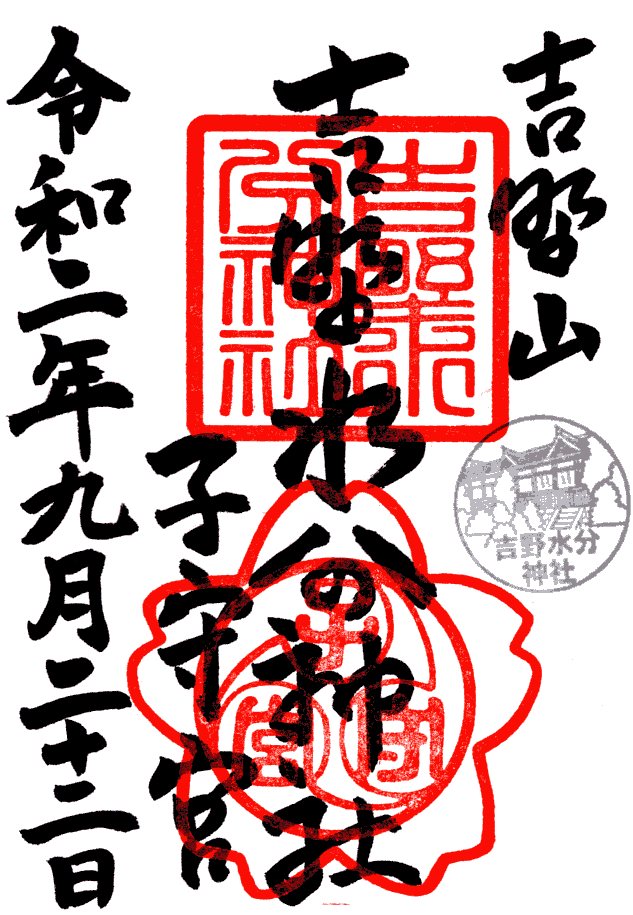 吉野山
吉野水分神社
子守宮
令和二年九月二十二日
吉野水
分神社
子守宮
吉野水分
神社